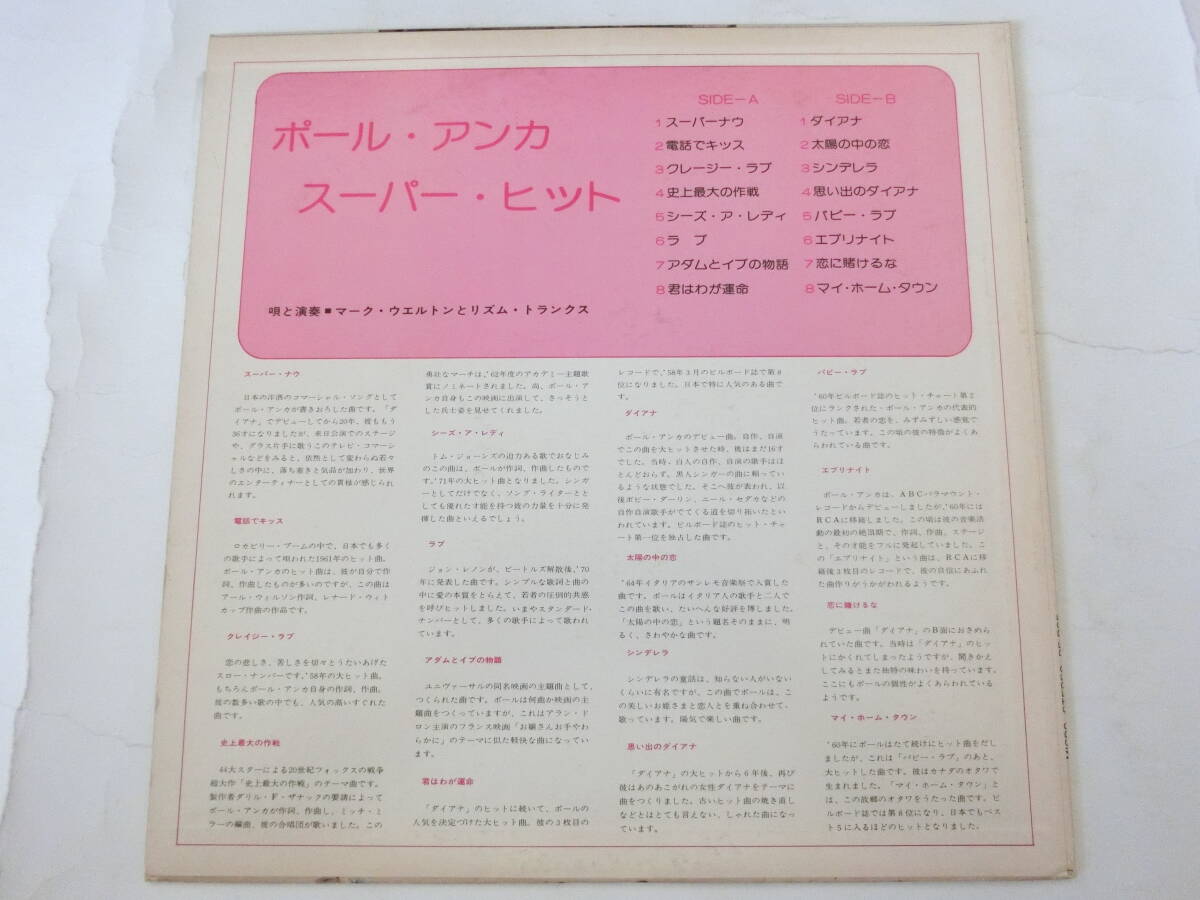 ポール・アンカ
スーパー・ヒット
唄と演奏■マーク・ウエルトンとリズム・トランクス
SIDE－A
1 スーパーナウ
2 電話でキッス
3 クレージー・ラブ
4 史上最大の作戦
5 シーズ・ア・レディ
6 ラ ブ
7 アダムとイブの物語
8 君はわが運命
SIDE－B
1 ダイアナ
2 太陽の中の恋
3 シンデレラ
4 思い出のダイアナ
5 パピー・ラブ
6 エブリナイト
7 恋に賭けるな
8 マイ・ホーム・タウン
スーパー・ナウ
日本の洋酒のコマーシャル・ソングとして
ポール・アンカが書きおろした曲です。「ダ
イアナ」でデビューしてから20年、彼ももう
36才になりましたが、来日公演でのステージ
や、グラス片手に歌うこのテレビ・コマーシ
ャルなどをみると、依然として変わらぬ若々
しさの中に、落ち着きと気品が加わり、世界
のエンターティナーとしての貫禄が感じられ
れます。
電話でキッス
ロカビリー・ブームの中で、日本でも多く
の歌手によって唄われた1961年のヒット曲。
ポール・アンカのヒット曲は、彼が自分で作
詞、作曲したものが多いのですが、この曲は
アール・ウィルソン作詞、レナード・ウィト
カップ作曲の作品です。
クレイジー・ラブ
恋の悲しさ、苦しさを切々とうたいあげた
スロー・ナンバーです。'58年の大ヒット曲。
もちろんポール・アンカ自身の作詞、作曲。
彼の数多い歌の中でも、人気の高いすぐれた
曲です。
史上最大の作戦
44大スターによる20世紀フォックスの戦争
超大作「史上最大の作戦」のテーマ曲です。
製作者ダリル・F・ザナックの要請によって
ポール・アンカが作詞、作曲し、ミッチ・ミ
ラーの編曲、彼の合唱団が歌いました。この
勇壮なマーチは、'62年度のアカデミー主題歌
賞にノミネートされました。尚、ポール・ア
ンカ自身もこの映画に出演して、さっそうと
した兵士姿を見せてくれました。
シーズ・ア・レディ
トム・ジョーンズの迫力ある歌でおなじみ
のこの曲は、ポールが作詞、作曲したもので
す。'71年の大ヒット曲となりました。シンガ
ーとしてだけでなく、ソング・ライターとと
しても優れた才能を持つ彼の力量を十分に発
揮した曲といえるでしょう。
ラブ
ジョン・レノンが、ビートルズ解散後、'70
年に発表した曲です。シンプルな歌詞と曲の
中に愛の本質をとらえて、若者の圧倒的共感
を呼びヒットしました。いまやスタンダード・
ナンバーとして、多くの歌手によって歌われ
ています。
アダムとイブの物語
ユニヴァーサルの同名映画の主題曲として、
つくられた曲です。ポールは何曲か映画の主
題曲をつくっていますが、これはアラン・ド
ロン主演のフランス映画「お嬢さんお手やわ
らかに」のテーマに似た軽快な曲になってい
ます。
君はわが運命
「ダイアナ」のヒットに続いて、ポールの
人気を決定づけた大ヒット曲。彼の3枚目の
レコードで、'58年3月のビルボード誌で第8
位になりました。日本で特に人気のある曲で
す。
ダイアナ
ポール・アンカのデビュー曲。自作、自演
でこの曲を大ヒットさせた時、彼はまだ16才
でした。当時、白人の自作、自演の歌手はほ
とんどおらず、黒人シンガーの曲に頼ってい
るような状態でした。そこへ彼が表われ、以
後ボビー・ダーリン、ニール・セダカなどの
自作自演歌手がでてくる道を切り拓いたとい
われています。ビルボード誌のヒット・チャ
ート第一位を独占した曲です。
太陽の中の恋
'64年イタリアのサンレモ音楽祭で入賞した
曲です。ポールはイタリア人の歌手と二人で
この曲を歌い、たいへんな好評を博しました。
「太陽の中の恋」という題名そのままに、明
るく、さわやかな曲です。
シンデレラ
シンデレラの童話は、知らない人がいない
くらいに有名ですが、この曲でポールは、こ
の美しいお姫さまと恋人とを重ね合わせて、
歌っています。陽気で楽しい曲です。
思い出のダイアナ
「ダイアナ」の大ヒットから6年後、再び
彼はあのあこがれの女性ダイアナをテーマに
曲をつくりました。古いヒット曲の焼き直し
などとはとても言えない、しゃれた曲になっ
ています。
パピー・ラブ
'60年ビルボード誌のヒット・チャート第2
位にランクされた・ポール・アンカの代表的
ヒット曲。若者の恋を、みずみずしい感覚で
うたっています。この頃の彼の特徴がよくあ
らわれている曲です。
エブリナイト
ポール・アンカは、ABCパラマウント・
レコードからデビューしましたが、'60年には
RCAに移籍しました。この頃は彼の音楽活
動の最初の絶頂期で、作詞、作曲、ステージ
と、その才能をフルに発起していました。こ
の「エブリナイト」という曲は、RCAに移
籍後3枚目のレコードで、彼の自信にあふれ
た曲作りがうかがわれるようです。
恋に賭けるな
デビュー曲「ダイアナ」のB面におさめら
れていた曲です。当時は「ダイアナ」のヒッ
トにかくれてしまったようですが、聞きかえ
してみるとまた独特の味わいを持っています。
ここにもポールの個性がよくあらわれている
ようです。
マイ・ホーム・タウン
'60年にポールはたて続けにヒット曲をだし
ましたが、これは「パピー・ラブ」のあと、
大ヒットした曲です。彼はカナダのオタワで
生まれました。「マイ・ホーム・タウン」と
は、この故郷のオタワをうたった曲です。ビ
ルボード誌では第8位になり、日本でもベス
ト5に入るほどのヒットとなりました。